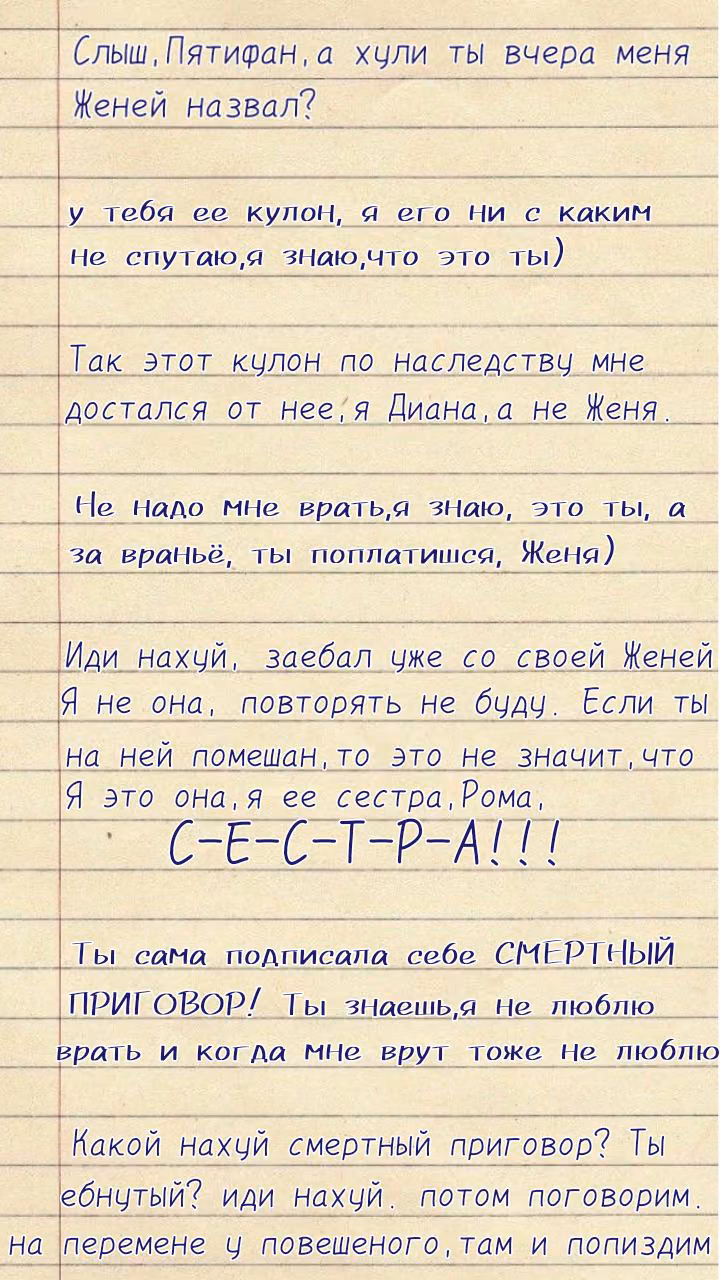 Слыш,Пятифан,а хули ты вчера меня
Женей назвал?
у тебя ее кулон, я его ни с каким
не спутаю,я знаю,что это ты)
Так этот кулон по наследству мне
достался от нее,я Диана,а не Женя.
Не надо мне врать,я знаю, это ты, а
за враньё, ты поплатишся, Женя)
Иди нахуй, заебал уже со своей Женей
Я не она, повторять не буду. Если ты
на ней помешан,то это не значит,что
Я это она,я ее сестра,Рома,
С-Е-С-Т-Р-А!!!
Ты сама подписала себе СМЕРТНЫЙ
ПРИГОВОР! Ты знаешь,я не люблю
врать и когда мне врут тоже не люблю
Какой нахуй смертный приговор? Ты
ебнутый? иди нахуй. потом поговорим.
на перемене у повешеного,там и попиздим